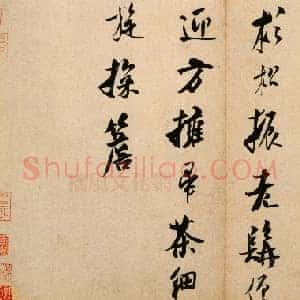 杉松振老髯僧
迎方擁帚茶細
旋探簷
Shufaziliao.com